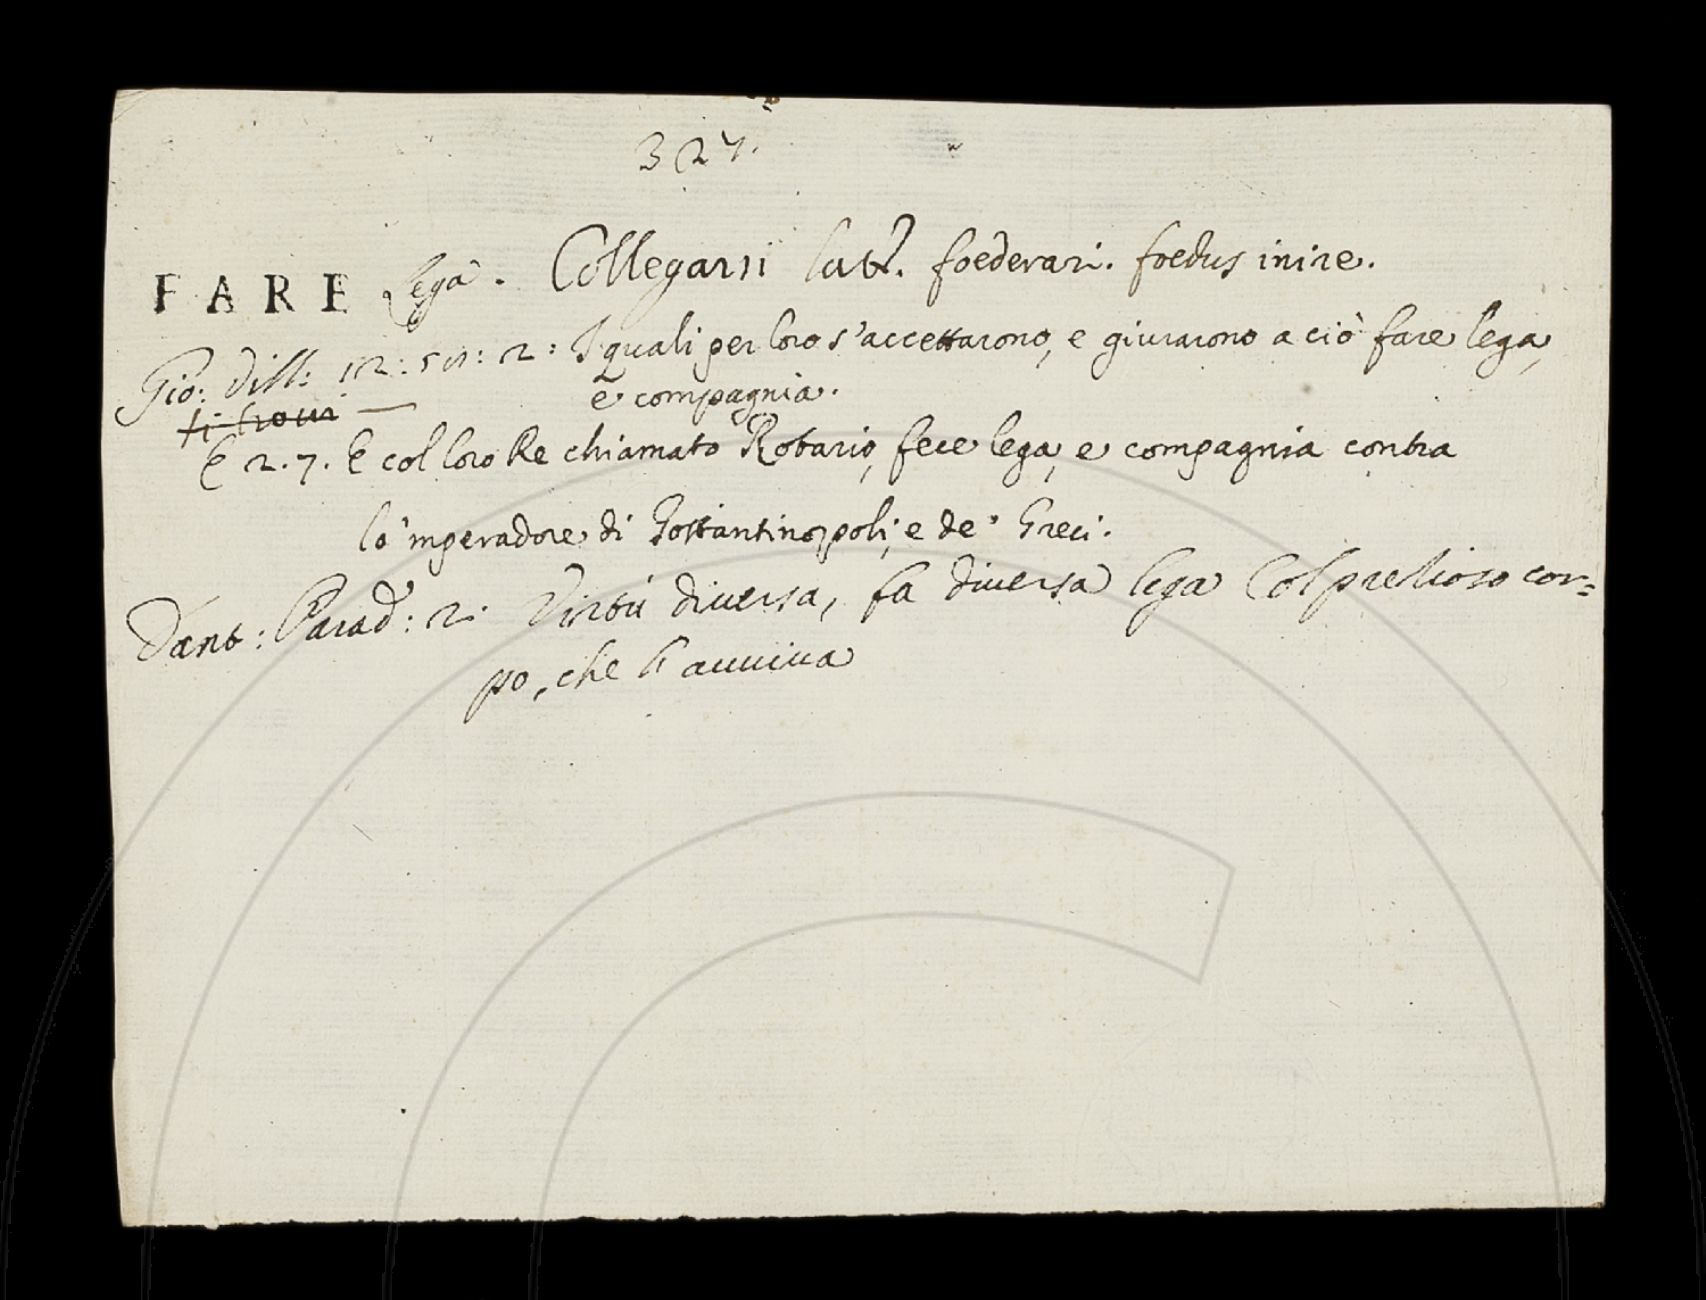 327.
FARE lega. Collegarsi lat. foederari. foedus inire.
Gio: Vill: 12: 2: I quali per loro s'accettarono, e giurarono a ciò fare lega,
e compagnia.
si trovi —
E 2.7. E col loro Re chiamato Rotario, fece lega, e compagnia contra
lo 'mperadore di Gostantinopoli, e de' Greci.
Dant: Parad: 2: Virtù diversa, fa diversa lega Col prezioso cor=
po, che l'avviva